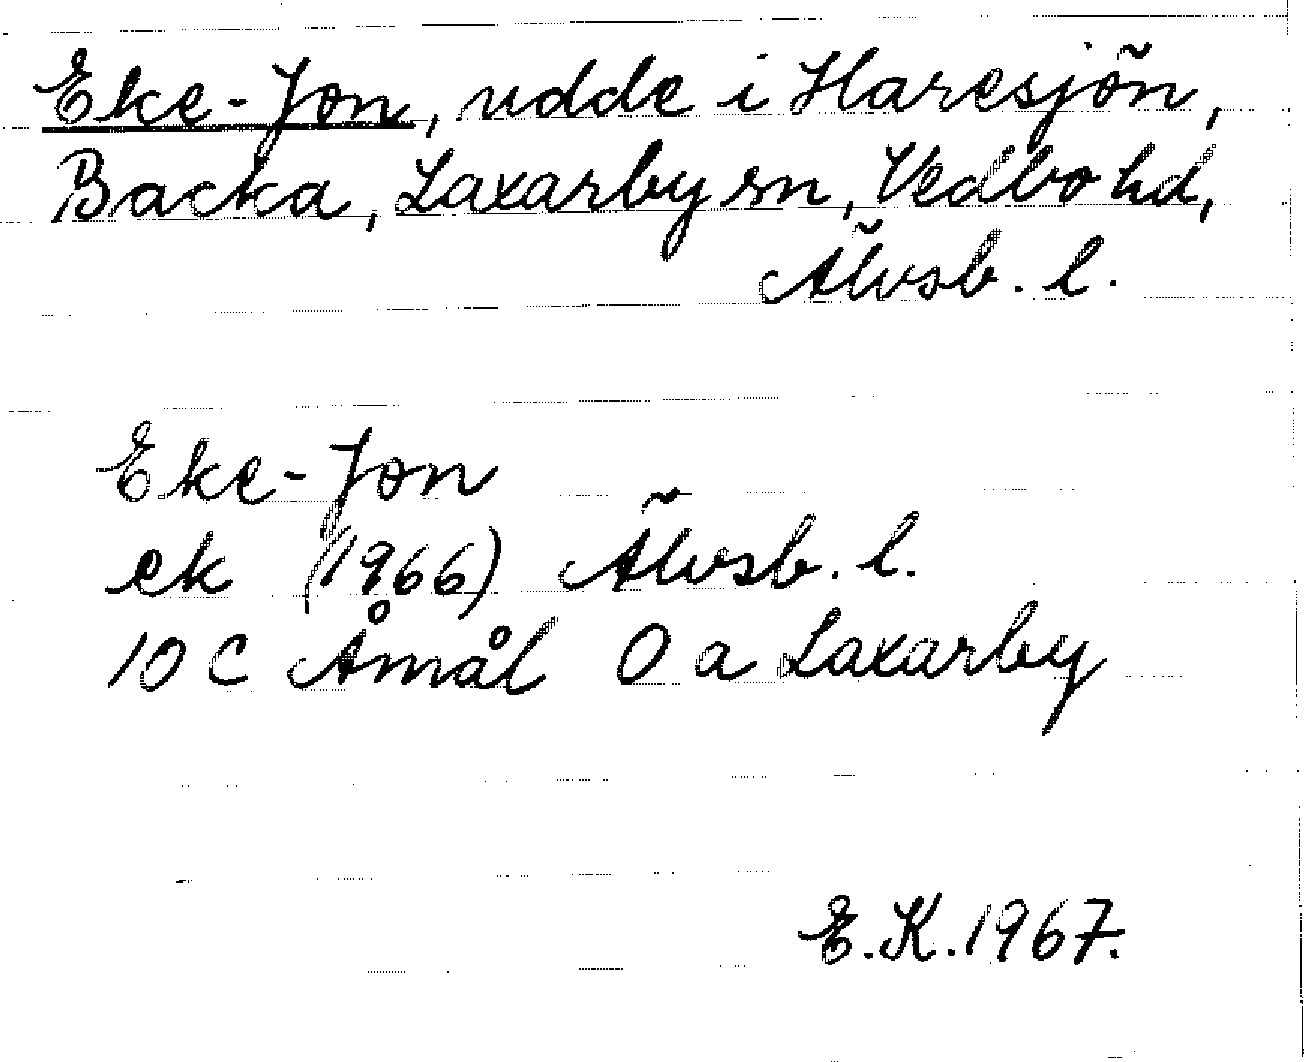 Eke-Jon, udde i Haresjön,
Backa, Laxarby sn, Vedbo hd,
Älvsb. l.
Eke-Jon
ek (1966) Älvsb. l.
10 C Åmål O a Laxarby
E.K. 1967.